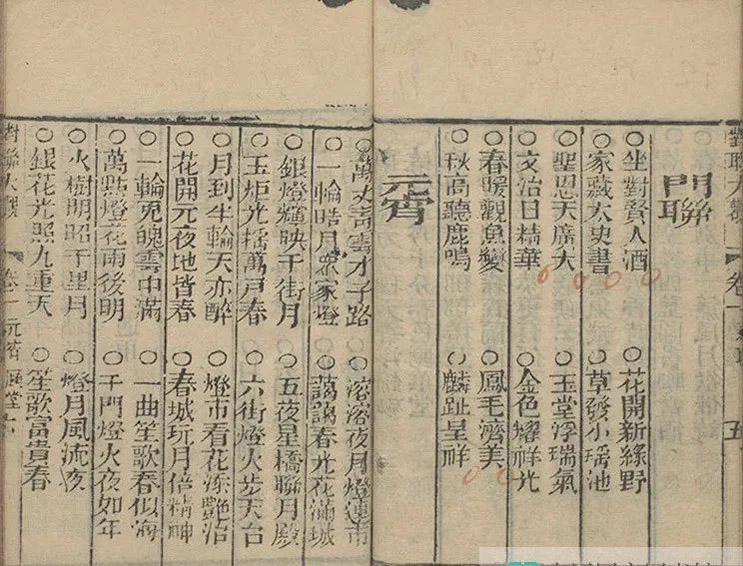 對聯大觀 卷一 五
門聯
○坐對賢人酒 ○花開新綠野
○家藏太史書 ○草發小瑤池
○聖恩天廣大 ○玉堂浮瑞氣
○文治日精華 ○金色耀祥光
○春暖觀魚變 ○鳳毛濟美
○秋高聽鹿鳴 ○麟趾呈祥
元宵
○萬丈青雲才子路 ○溶溶夜月燈連市
○一輪皓月眾家燈 ○藹藹春光花滿城
○銀燈輝映千街月 ○五夜星橋聯月殿
○玉炬光搖萬戶春 ○六街燈火步天台
○月到半輪天亦醉 ○燈市看花添艷冶
○花開元夜地皆春 ○春城玩月倍精神
○一輪兔魄雲中滿 ○一曲笙歌春似海
○萬點燈花雨後明 ○千門燈火夜如年
○火樹明昭千里月 ○燈月風流夜
○銀花光照九重天 ○笙歌富貴春
對聯大觀 卷一 元宵